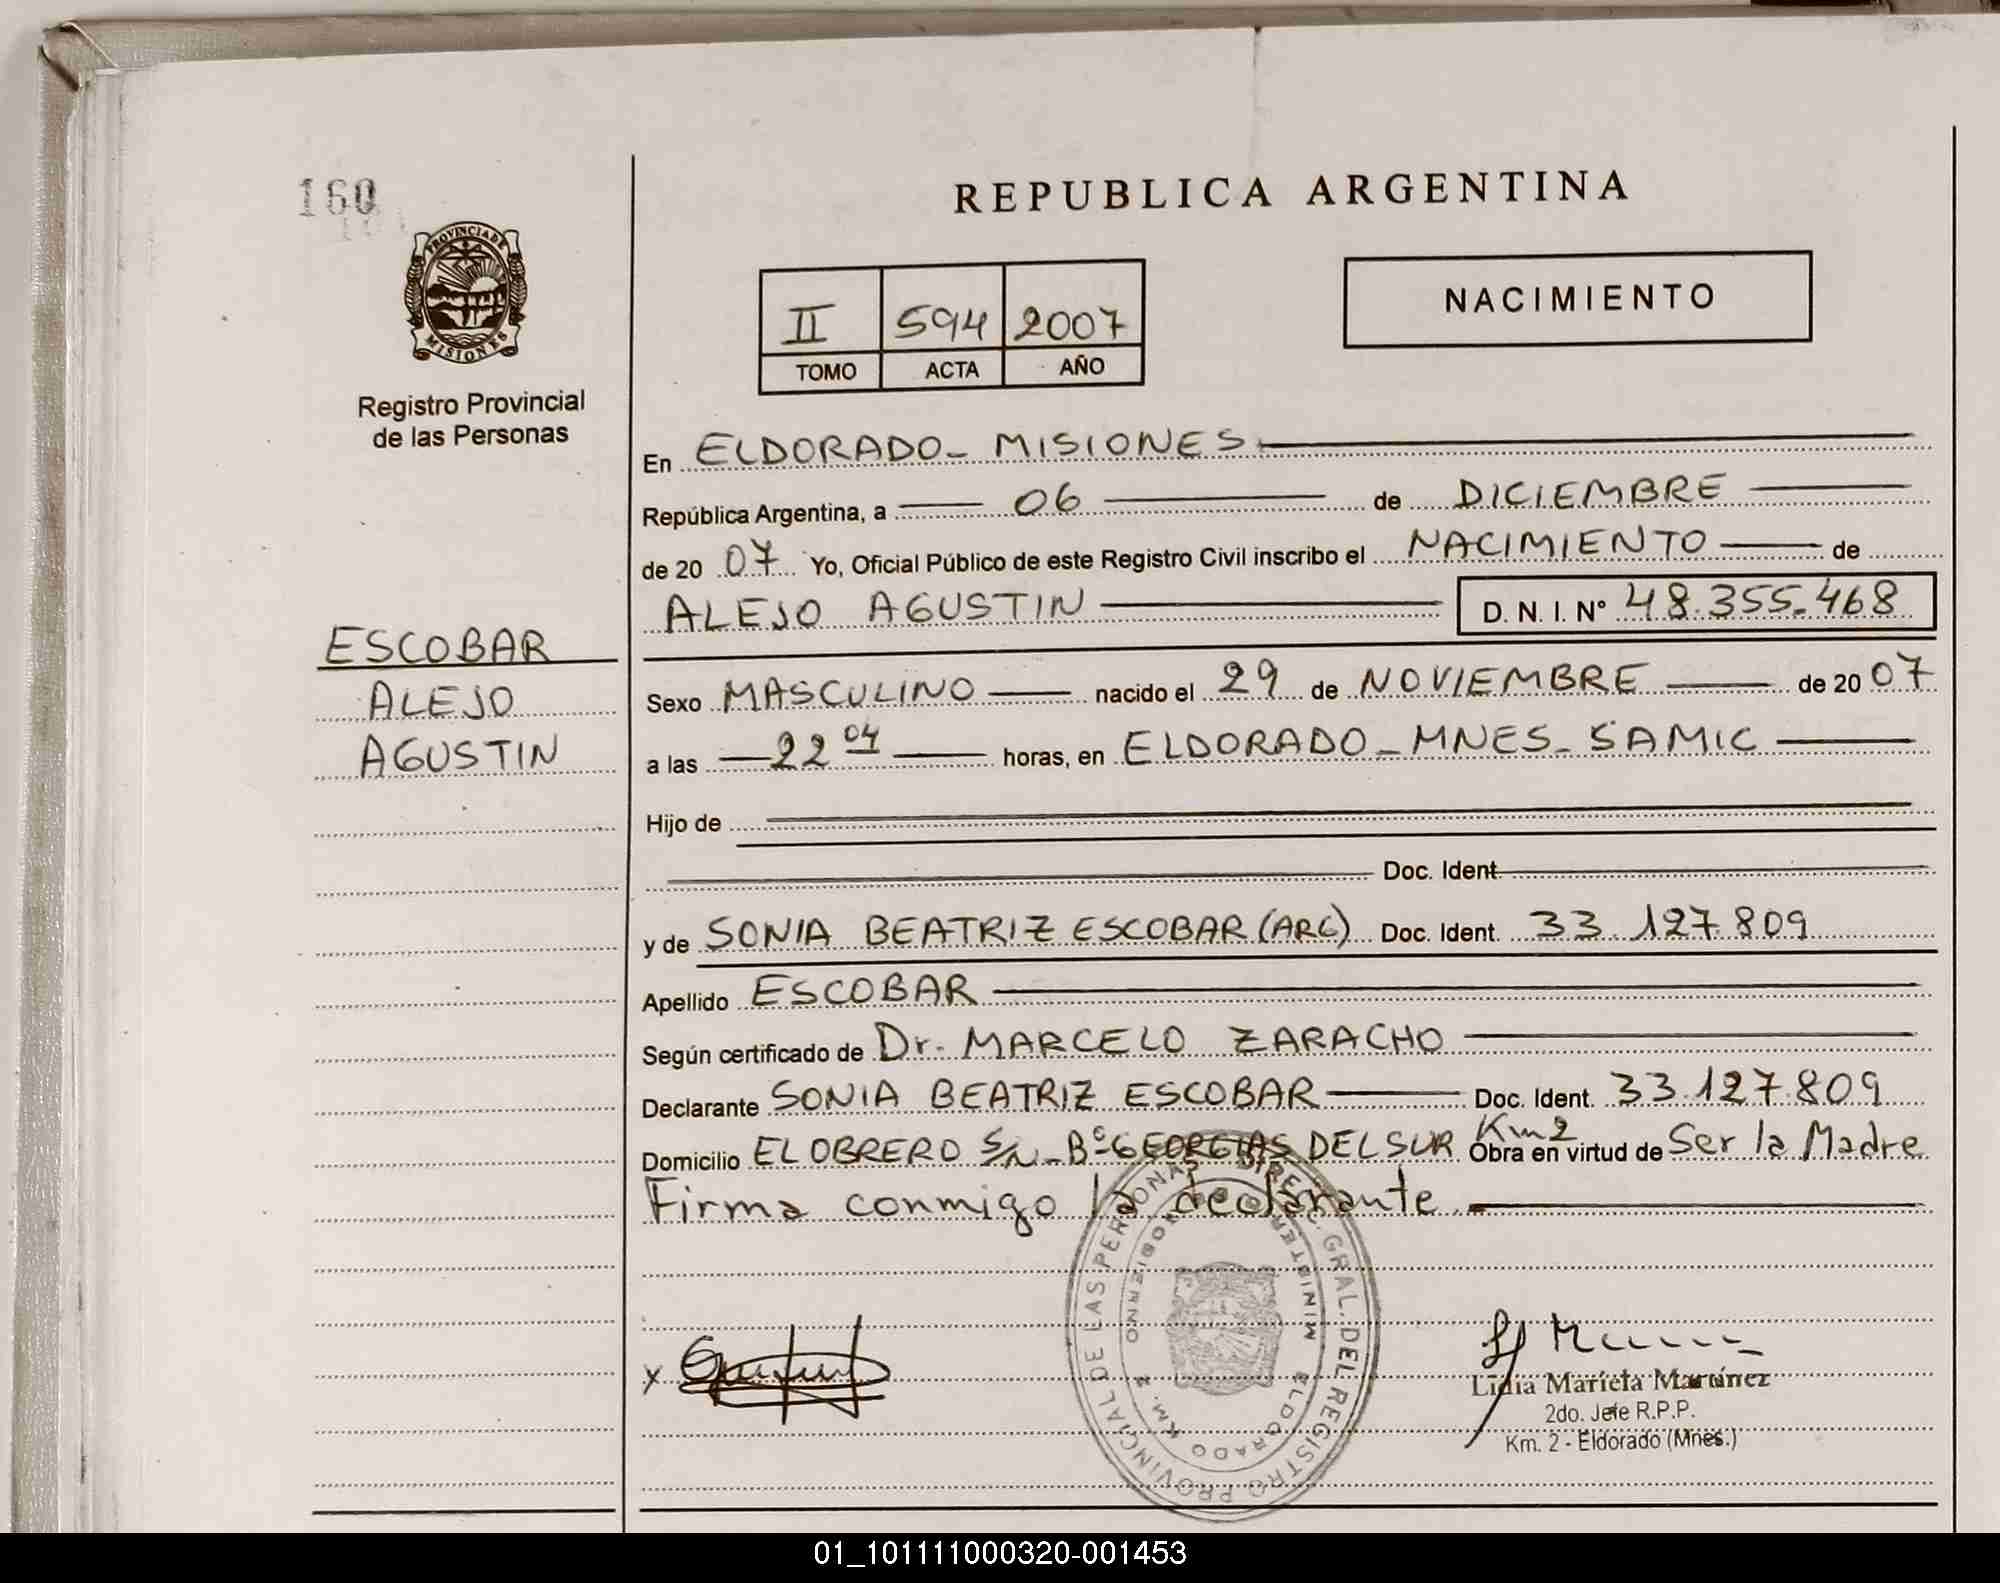 160
REPUBLICA ARGENTINA
PROVINCIA DE MISIONES
Registro Provincial
de las Personas
II 594 2007
TOMO ACTA AÑO
NACIMIENTO
En ELDORADO - MISIONES
República Argentina, a 06 de DICIEMBRE
de 20 07 Yo, Oficial Público de este Registro Civil inscribo el NACIMIENTO de
ALEJO AGUSTIN D. N. I. Nº 48.355.468
ESCOBAR
ALEJO
AGUSTIN
Sexo MASCULINO nacido el 29 de NOVIEMBRE de 20 07
a las 22 04 horas, en ELDORADO - MNES - SAMIC
Hijo de
Doc. Ident.
y de SONIA BEATRIZ ESCOBAR (ARG) Doc. Ident. 33.127.809
Apellido ESCOBAR
Según certificado de Dr. MARCELO ZARACHO
Declarante SONIA BEATRIZ ESCOBAR Doc. Ident. 33.127.809
Domicilio EL OBRERO S/N - Bº GEORGIAS DEL SUR Km 2 Obra en virtud de Ser la Madre
Firma conmigo la declarante
DIREC. GRAL. DEL REGISTRO PROVINCIAL DE LAS PERSONAS
MINISTERIO GOBIERNO
ELDORADO KM. 2
X
Lidia Mariela Martínez
2do. Jefe R.P.P.
Km. 2 - Eldorado (Mnes.)
01_101111000320-001453